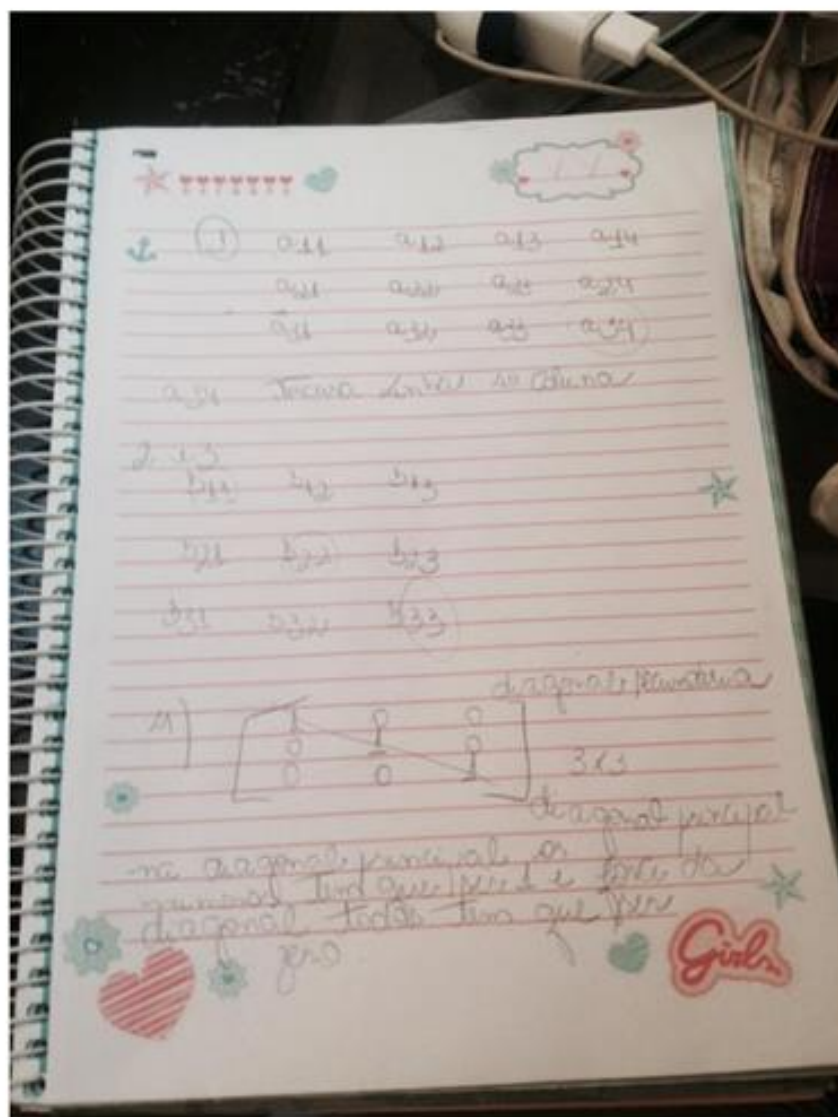 1 a11 a12 a13 a14
a21 a22 a23 a24
a31 a32 a33 a34
a34 linha 4ª coluna
b11 b12 b13
b21 b22 b23
b31 b32 b33
diagonal secundaria
4) 1 0 0
0 1 0
0 0 1
3x3
diagonal principal
na diagonal principal os
numeros tem que ser 1 e fora da
diagonal todos tem que ser
zero
Girls